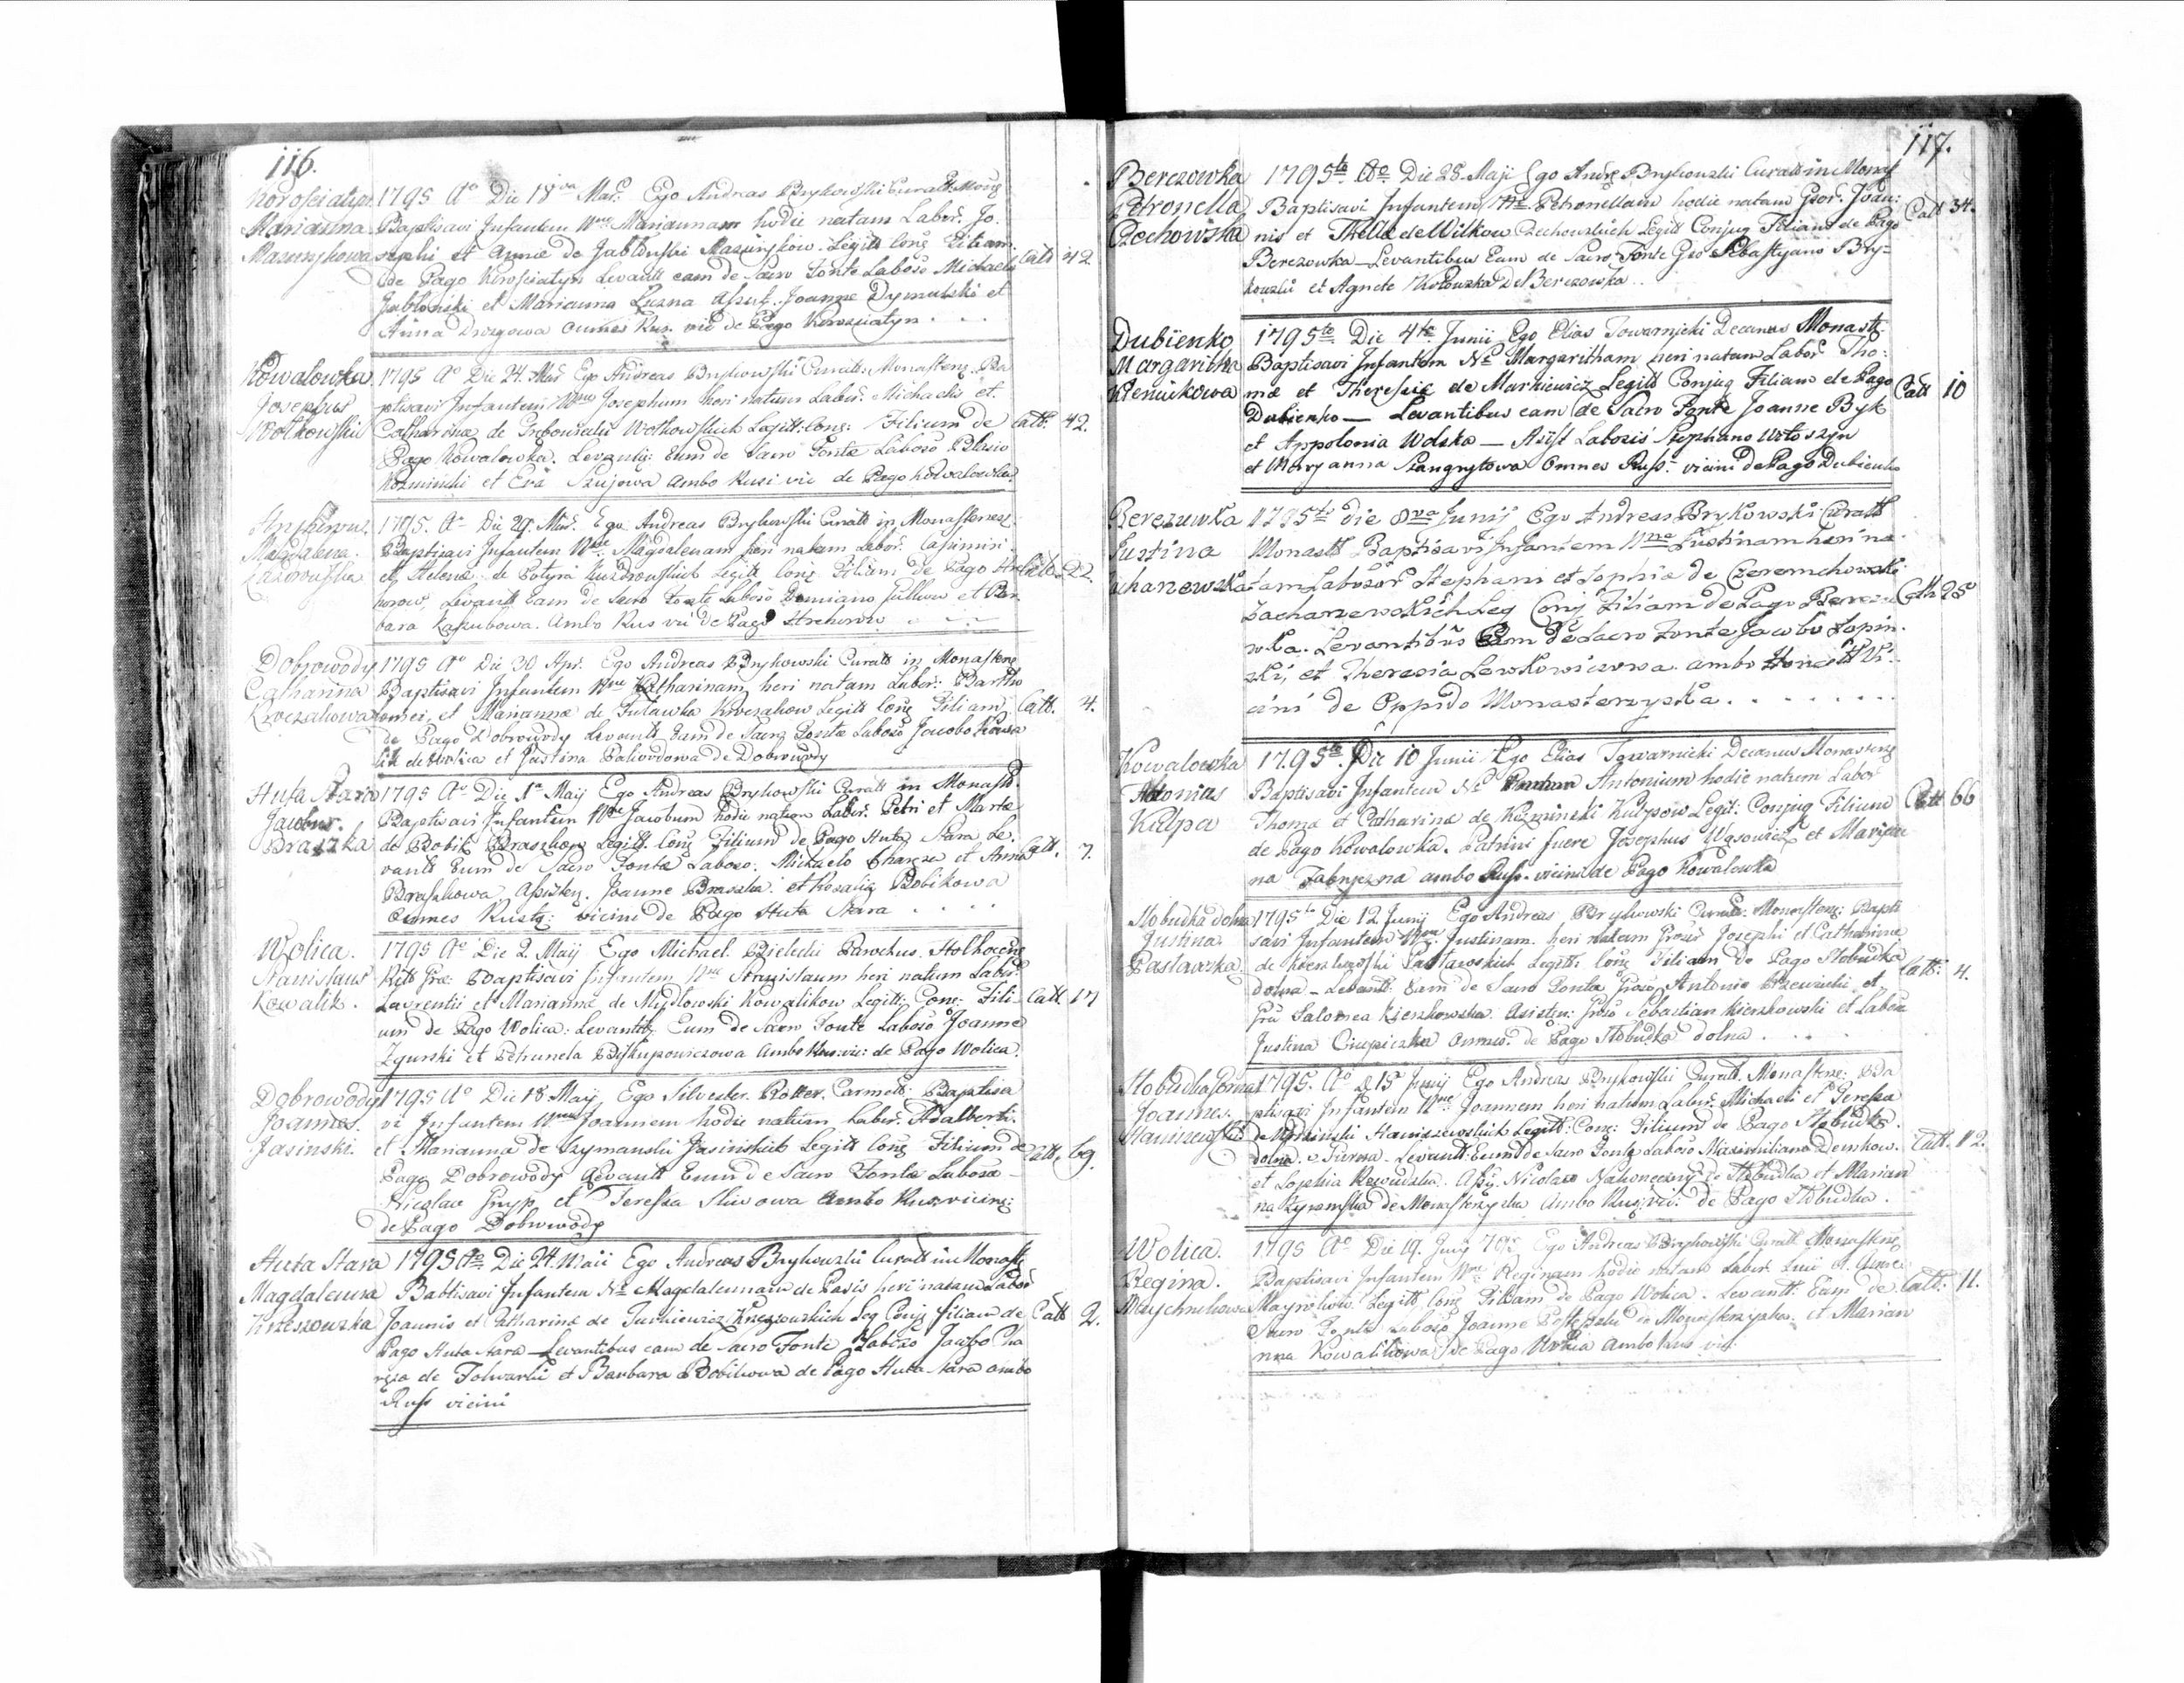 116.
Korosciatyn 1795 Ao Die 18va Mar: Ego Andreas Brykowski Curatt: Mon:
Marianna Baptisavi Infantem Nne Mariannam hodie natam Labor. Jo-
Mazurykowa sephi et Annæ de Jabłonski Mazurykow. Legitt Conj Filiam. Catt 42.
de Pago Korosciatyn Levantt eam de Sacro Fonte Laboso Michaele
Jabłonski et Marianna Luzna Assist. Joanne Dymulski et
Anna Drozgowa omnes Rus. vic de Pago Korosciatyn
Kowalowka 1795 Ao Die 24. Mar Ego Andreas Brykowski Curatt Monasterz. Ba
Josephus ptisavi Infantem Nne Josephum heri natum Labor. Michaelis et
Wołkowski Catharinæ de Wołkowskich Legitt: Conj: Filium de Catt: 42.
Pago Kowalowka. Levantt: Eum de Sacro Fonte Laboso Blasio
Kozminski et Eva Szujowa ambo Rusi vic de Pago Kowalowka
1795. Ao Die 29. Mar. Ego Andreas Brykowski Curatt in Monasterz.
Magdalena. Baptisavi Infantem Nne Magdalenam heri natam Labor. Casimiri
et Helenæ de Legitt Conj Filiam de Pago Catt. 22.
Levantt Eam de Sacro Fonte Laboso Damiano et Bar
bara Kapubowa. Ambo Rus vic de Pago
Dobrowody 1795 Ao Die 30 Apr. Ego Andreas Brykowski Curatt in Monasterz
Catharina Baptisavi Infantem Nne Katharinam heri natam Labor: Bartho
lomei, et Mariannæ de Legitt Conj Filiam Catt. 4.
de Pago Dobrowody Levantt Eam de Sacro Fonte Laboso Jacobo Kowa
lik de Wolica et Justina Paliwodowa de Dobrowody
Huta Stara 1795 Ao Die 1a Maij Ego Andreas Brykowski Curatt in Monast.
Jacobus. Baptisavi Infantem Nne Jacobum hodie natum Labor. Petri et Martæ
Braszka de Bobik Braszkow Legitt. Conj Filium de Pago Huta Stara Le- Catt. 7.
vantt Eum de Sacro Fonte Laboso. Michaele et Anna
Braszkowa, Assisten. Joanne Braszka et Rosalia Bobikowa
Omnes Rust: vicini de Pago Huta Stara
Wolica. 1795 Ao Die 2 Maij Ego Michael Bielecki Parochus.
Stanislaus Baptisavi Infantem Nne Stanislaum heri natum Labor.
Kowalik. Laurentii et Mariannæ de Mydłowski Kowalikow Legitt: Conj: Fili Catt 17
um de Pago Wolica: Levantt Eum de Sacro Fonte Laboso Joanne
Zgurski et Petrunela Biskupowiczowa ambo Rus vic: de Pago Wolica.
Dobrowody 1795 Ao Die 18 Maij Ego Silvester. Rotter. Carmelt: Baptisa
Joannes. vi Infantem Nne Joannem hodie natum Labor. Adalberti.
Jasinski. et Marianna de Szymanski Jasinskich Legitt Conj Filium de Catt. 69.
Pago Dobrowody Levantt Eum de Sacro Fonte Laboso
Nicolao Gryp et Teressa Sliwowa ambo Rus vicini:
de Pago Dobrowody
Huta Stara 1795 Ao Die 24. Maii Ego Andreas Brykowski Curatt in Monast
Magdalenna Babtisavi Infantem Ne Magdalennam de Pasis heri natam Labor
Krzeszowska Joannis et Catharinæ de Turkiewicz Krzeszowskich Leg Conj filiam de Catt 2.
Pago Huta Stara Levantibus eam de Sacro Fonte Laboso Jacobo Cha
de Folwarki et Barbara Bobikowa de Pago Huta Stara ambo
Russ vicini
117.
Berezowka 1795to Ao Die 28 Maji Ego Andre Brykowski Curatt in Monast
Petronella Baptisavi Infantem Nne Petronellam hodie natam Gsor. Joan: Catt 34.
Czechowska nis et Theklæ de Witkow Czechowskich Legitt Conjug Filiam de Pago
Berezowka Levantibus Eam de Sacro Fonte Gso Sebastyano Bry-
kowski et Agnete Kołowska de Berezowka
Dubienko 1795to Die 4ta Junii Ego Elias Towarnicki Decanus Monast:
Margaritha Baptisavi Infantem Ne Margaritham heri natam Labor Tho:
mæ et Theresiæ de Markiewicz Legitt Conjug Filiam de Pago Catt 10
Dubienko — Levantibus eam de Sacro Fonte Joanne Byk
et Appolonia Wolska — Assist Laboris Stephano Wołoszyn
et Maryanna Szangrytowa Omnes Russ. vicini de Pago Dubienko
Berezuwka 1795to Die 8va Junij Ego Andreas Brykowski Curatt
Justina Monastt Baptisavi Infantem Nne Justinam heri na-
tam Labosor Stephani et Sophiæ de Czeremchowski
Zacharzewskich Leg Conj Filiam de Pago Berezu Catt 25
wka. Levantibus Eam de Sacro Fonte Jacobo Łopin-
ski, et Theresia Lewkowiczowa. ambo Honestt Vi-
cini de Oppido Monasterzyska
Kowalowka 1795to Die 10 Junii Ego Elias Towarnicki Decanus Monasterz
Antonius Baptisavi Infantem Ne Antonium hodie natum Labor
Kulpa Thomæ et Catharinæ de Kozminski Kulpow Legit: Conjug Filium Catt 66
de Pago Kowalowka. Patrini fuere Josephus Wąsowicz et Marijan
na ambo Russ. vicini de Pago Kowalowka
Słobudka dolna 1795to Die 12 Junij Ego Andreas Brykowski Curatt. Monasterz: Bapti
Justina savi Infantem Nne Justinam. heri natam Grosor Josephi et Catharinæ
de Kierzkowski Legitt: Conj Filiam de Pago Słobudka Catt: 4.
dolna — Levantt: Eam de Sacro Fonte Groso Antonio et
Gra Salomea Kierzkowska. Asisten: Groso Sebastian Kierzkowski et Labosa
Justina omnes de Pago Słobudka dolna
1795. Ao d 15 Junij Ego Andreas Brykowski Curatt. Monasterz: Ba
Joannes. ptisavi Infantem Nne Joannem heri natum Labor. Michaeli et Teressa
Staniszewskich Legitt: Conj: Filium de Pago Słobudka
dolna. Levantt: Eum de Sacro Fonte Laboso Maximiliano Demkow. Catt. 12.
et Sophia Assi. Nicolao Nakoneczny de Słobudka et Marian
na de Monasterzyska Ambo Rus: vic: de Pago Słobudka.
Wolica. 1795 Ao Die 19. Junij Ego Andreas Brykowski Curatt Monasterz
Regina. Baptisavi Infantem Nne Reginam hodie natam Labor et Annæ
Legitt Conj Filiam de Pago Wolica. Levantt: Eam de Catt: 11.
Sacro Fonte Laboso Joanne de Monasterzyska. et Marian
nna Kowalikowa de Pago Wolica ambo Rus vic